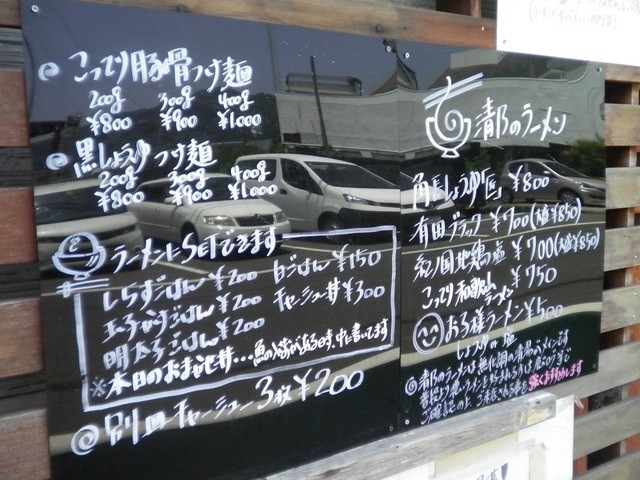 こってり豚骨つけ麺
200g 300g 400g
¥800 ¥900 ¥1000
黒しょうゆつけ麺
200g 300g 400g
¥800 ¥900 ¥1000
ラーメンにSETできます
しらすごはん ¥200 白ごはん ¥150
玉子かけごはん ¥200 チャーシュー丼 ¥300
明太子ごはん ¥200
※本日のおまかせ丼…魚の
中に書いてます
別皿チャーシュー3枚 ¥200
のラーメン
角長しょうゆ ¥800
有田ブラック ¥700(大盛¥850)
紀ノ国地鶏塩 ¥700(大盛¥850)
こってり和歌山 ¥750
お子様ラーメン ¥500
しょうゆor塩
のラーメンは無化調の
ラーメンです
強くおすすめします